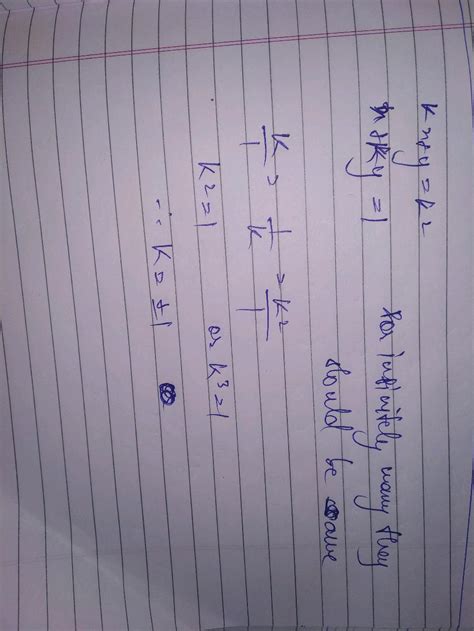 kx+y=k²
x+ky=1
for infinitely many they
should be same
k/1 = 1/k = k²/1
k²=1 or k³=1
∴ k=±1